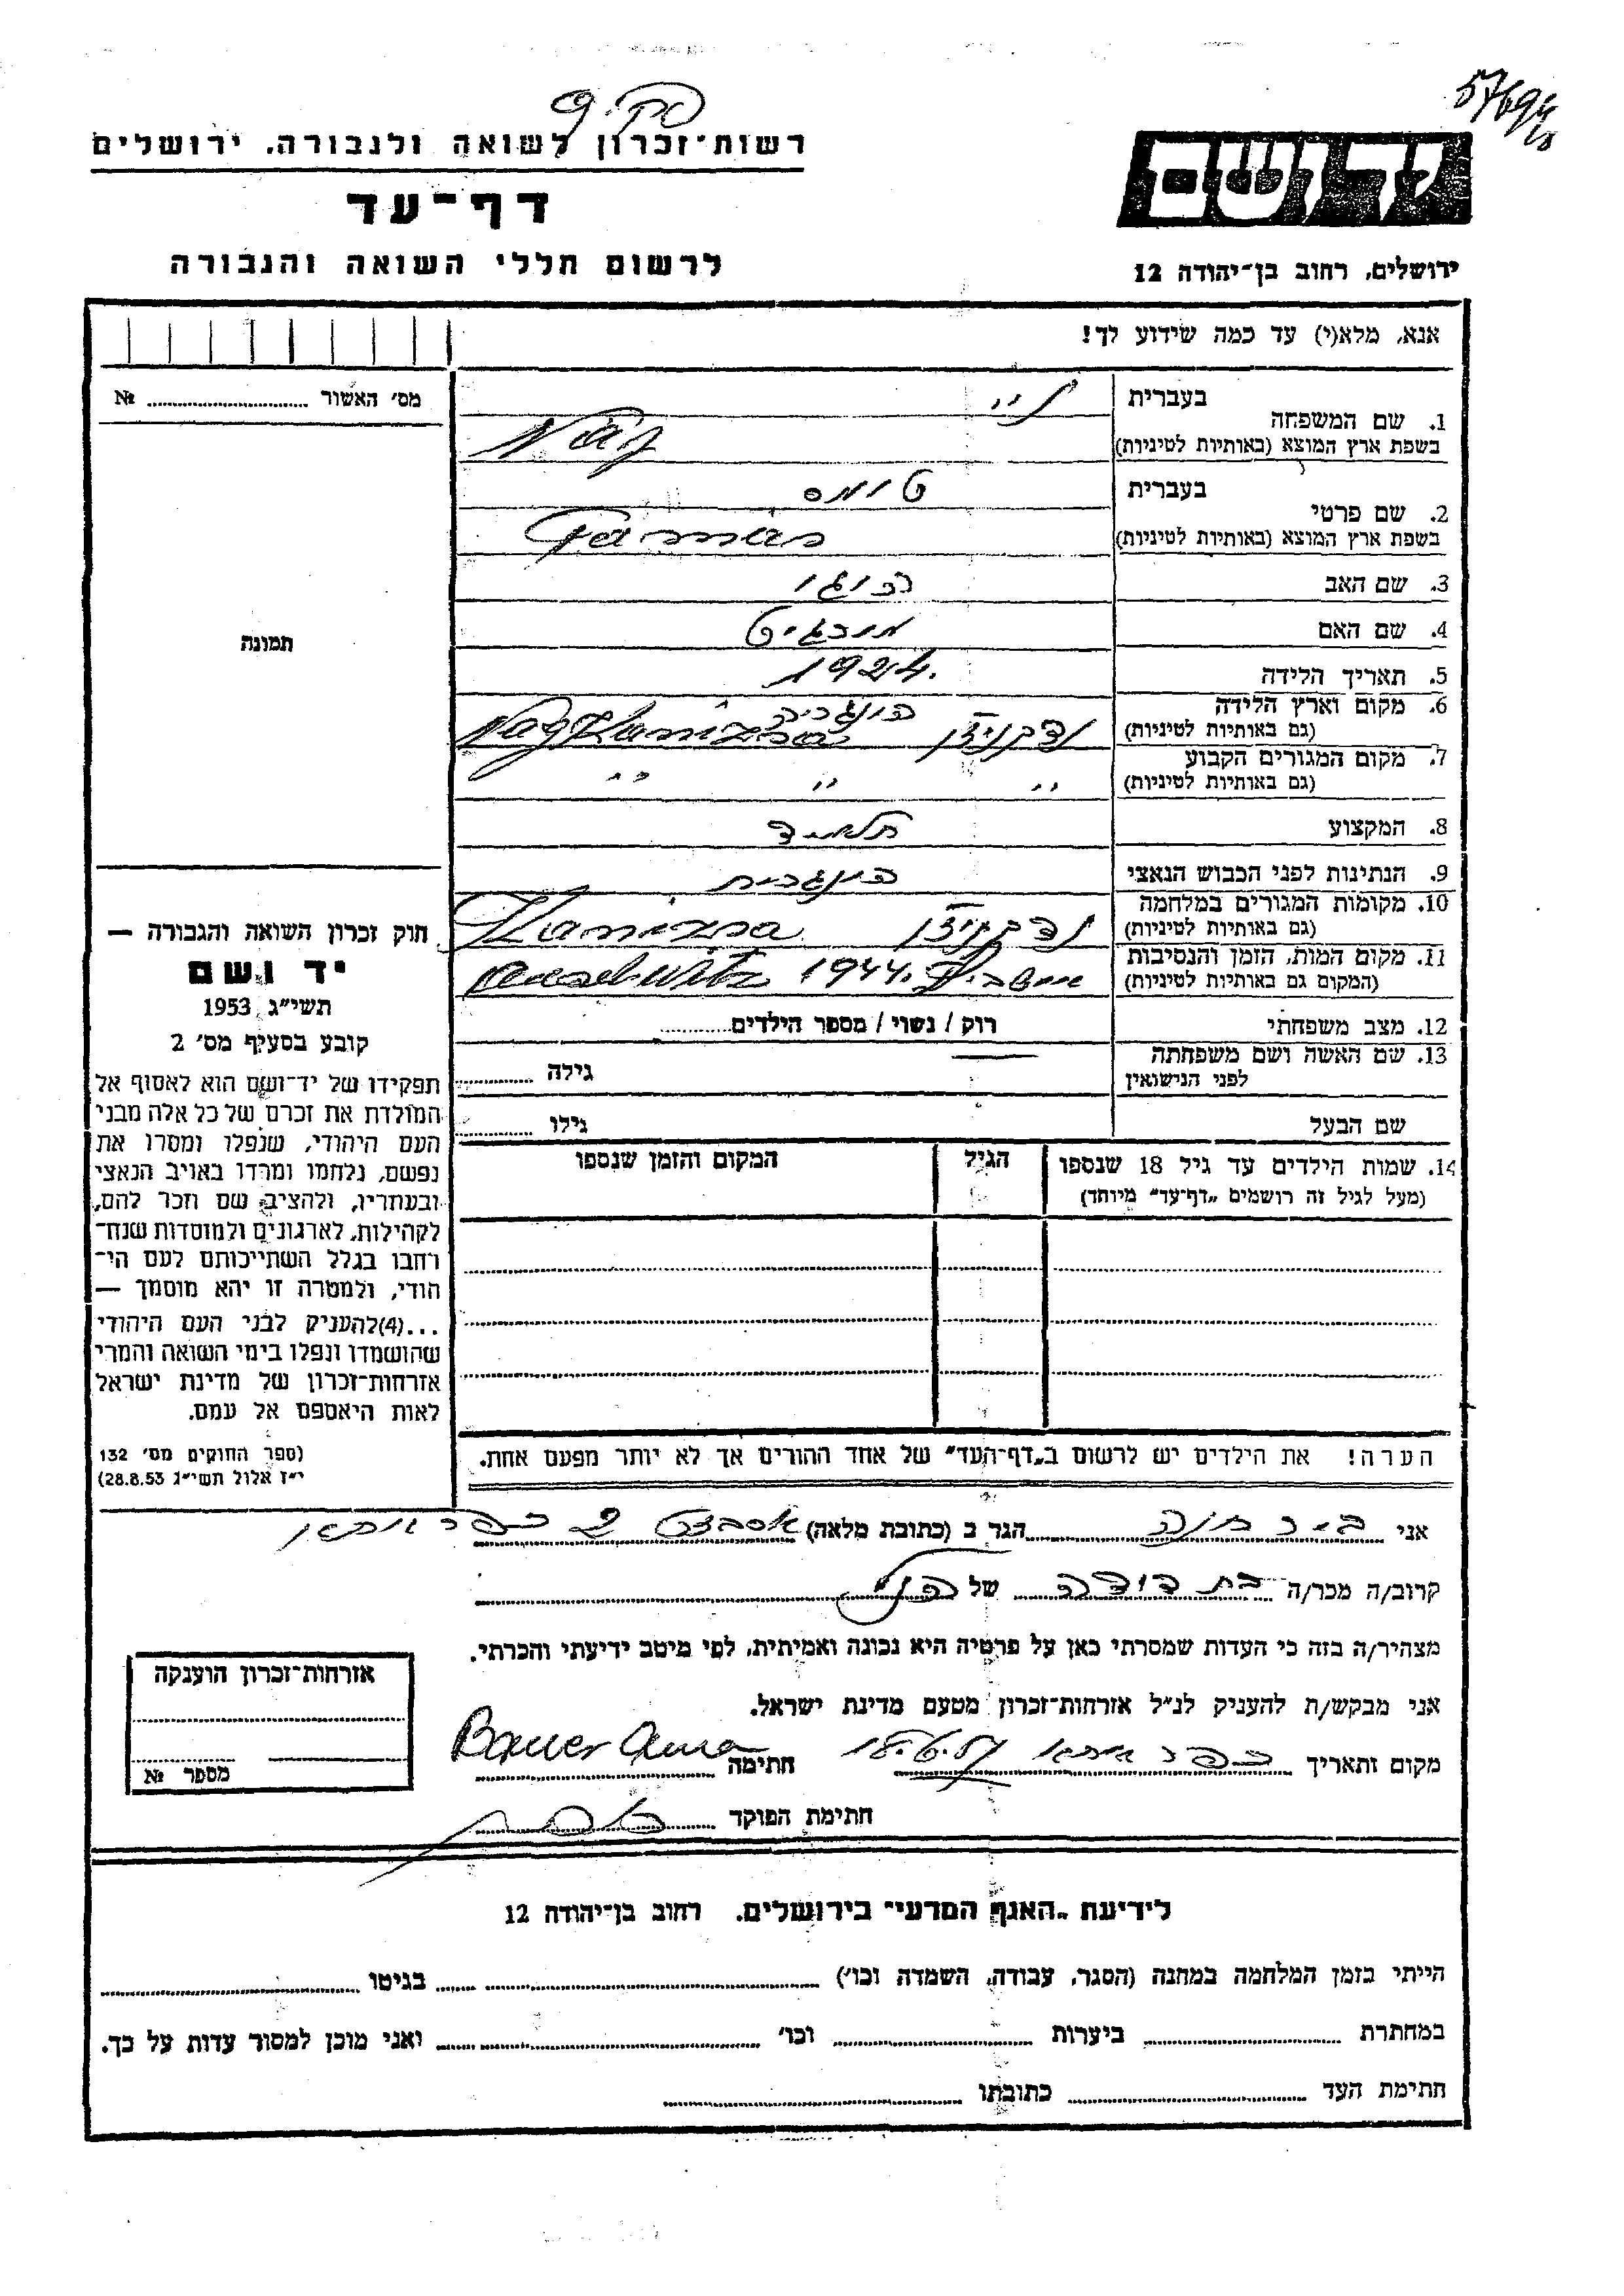 רשות־זכרון לשואה ולגבורה, ירושלים
דף־עד
לרשום חללי השואה והגבורה
ירושלים, רחוב בן־יהודה 12
אנא, מלא(י) עד כמה שידוע לך!
מס׳ האשור № 
תמונה
1. שם המשפחה
בעברית
בשפת ארץ המוצא (באותיות לטיניות)
2. שם פרטי
בעברית טומס
בשפת ארץ המוצא (באותיות לטיניות) Tamás
3. שם האב הוגו
4. שם האם מרגיט
5. תאריך הלידה 1924.
6. מקום וארץ הלידה הונגריה
(גם באותיות לטיניות) Nagykanizsa
7. מקום המגורים הקבוע
(גם באותיות לטיניות) ״ ״ ״
8. המקצוע תלמיד
9. הנתינות לפני הכבוש הנאצי הונגרית
10. מקומות המגורים במלחמה
(גם באותיות לטיניות) Kanizsa
11. מקום המות, הזמן והנסיבות
(המקום גם באותיות לטיניות) 1944. Auschwitz
12. מצב משפחתי רוק / נשוי / מספר הילדים
13. שם האשה ושם משפחתה
לפני הנישואין גילה
שם הבעל גילו
14. שמות הילדים עד גיל 18 שנספו הגיל המקום והזמן שנספו
(מעל לגיל זה רושמים „דף־עד״ מיוחד)
הערה! את הילדים יש לרשום ב„דף־העד״ של אחד ההורים אך לא יותר מפעם אחת.
חוק זכרון השואה והגבורה —
יד ושם
תשי״ג 1953
קובע בסעיף מס׳ 2
תפקידו של יד־ושם הוא לאסוף אל
המולדת את זכרם של כל אלה מבני
העם היהודי, שנפלו ומסרו את
נפשם, נלחמו ומרדו באויב הנאצי
ובעוזריו, ולהציב שם וזכר להם,
לקהילות, לארגונים ולמוסדות שנח־
רחבו בגלל השתייכותם לעם הי־
הודי, ולמטרה זו יהא מוסמך —
...(4)להעניק לבני העם היהודי
שהושמדו ונפלו בימי השואה והמרי
אזרחות־זכרון של מדינת ישראל
לאות היאספם אל עמם.
(ספר החוקים מס׳ 132
י״ז אלול תשי״ג 28.8.53)
אני חנה הגר ב (כתובת מלאה) כפר אתא
קרוב/ה מכר/ה בת דודה של הנ״ל
מצהיר/ה בזה כי העדות שמסרתי כאן על פרטיה היא נכונה ואמיתית, לפי מיטב ידיעתי והכרתי.
אני מבקש/ת להעניק לנ״ל אזרחות־זכרון מטעם מדינת ישראל.
מקום ותאריך כפר אתא חתימה Bauer Anna
חתימת הפוקד
אזרחות־זכרון הוענקה
מספר №
לידיעת „האגף המדעי״ בירושלים, רחוב בן־יהודה 12
הייתי בזמן המלחמה במחנה (הסגר, עבודה, השמדה וכו׳) בגיטו
במחתרת ביערות וכו׳ ואני מוכן למסור עדות על כך.
חתימת העד כתובתו